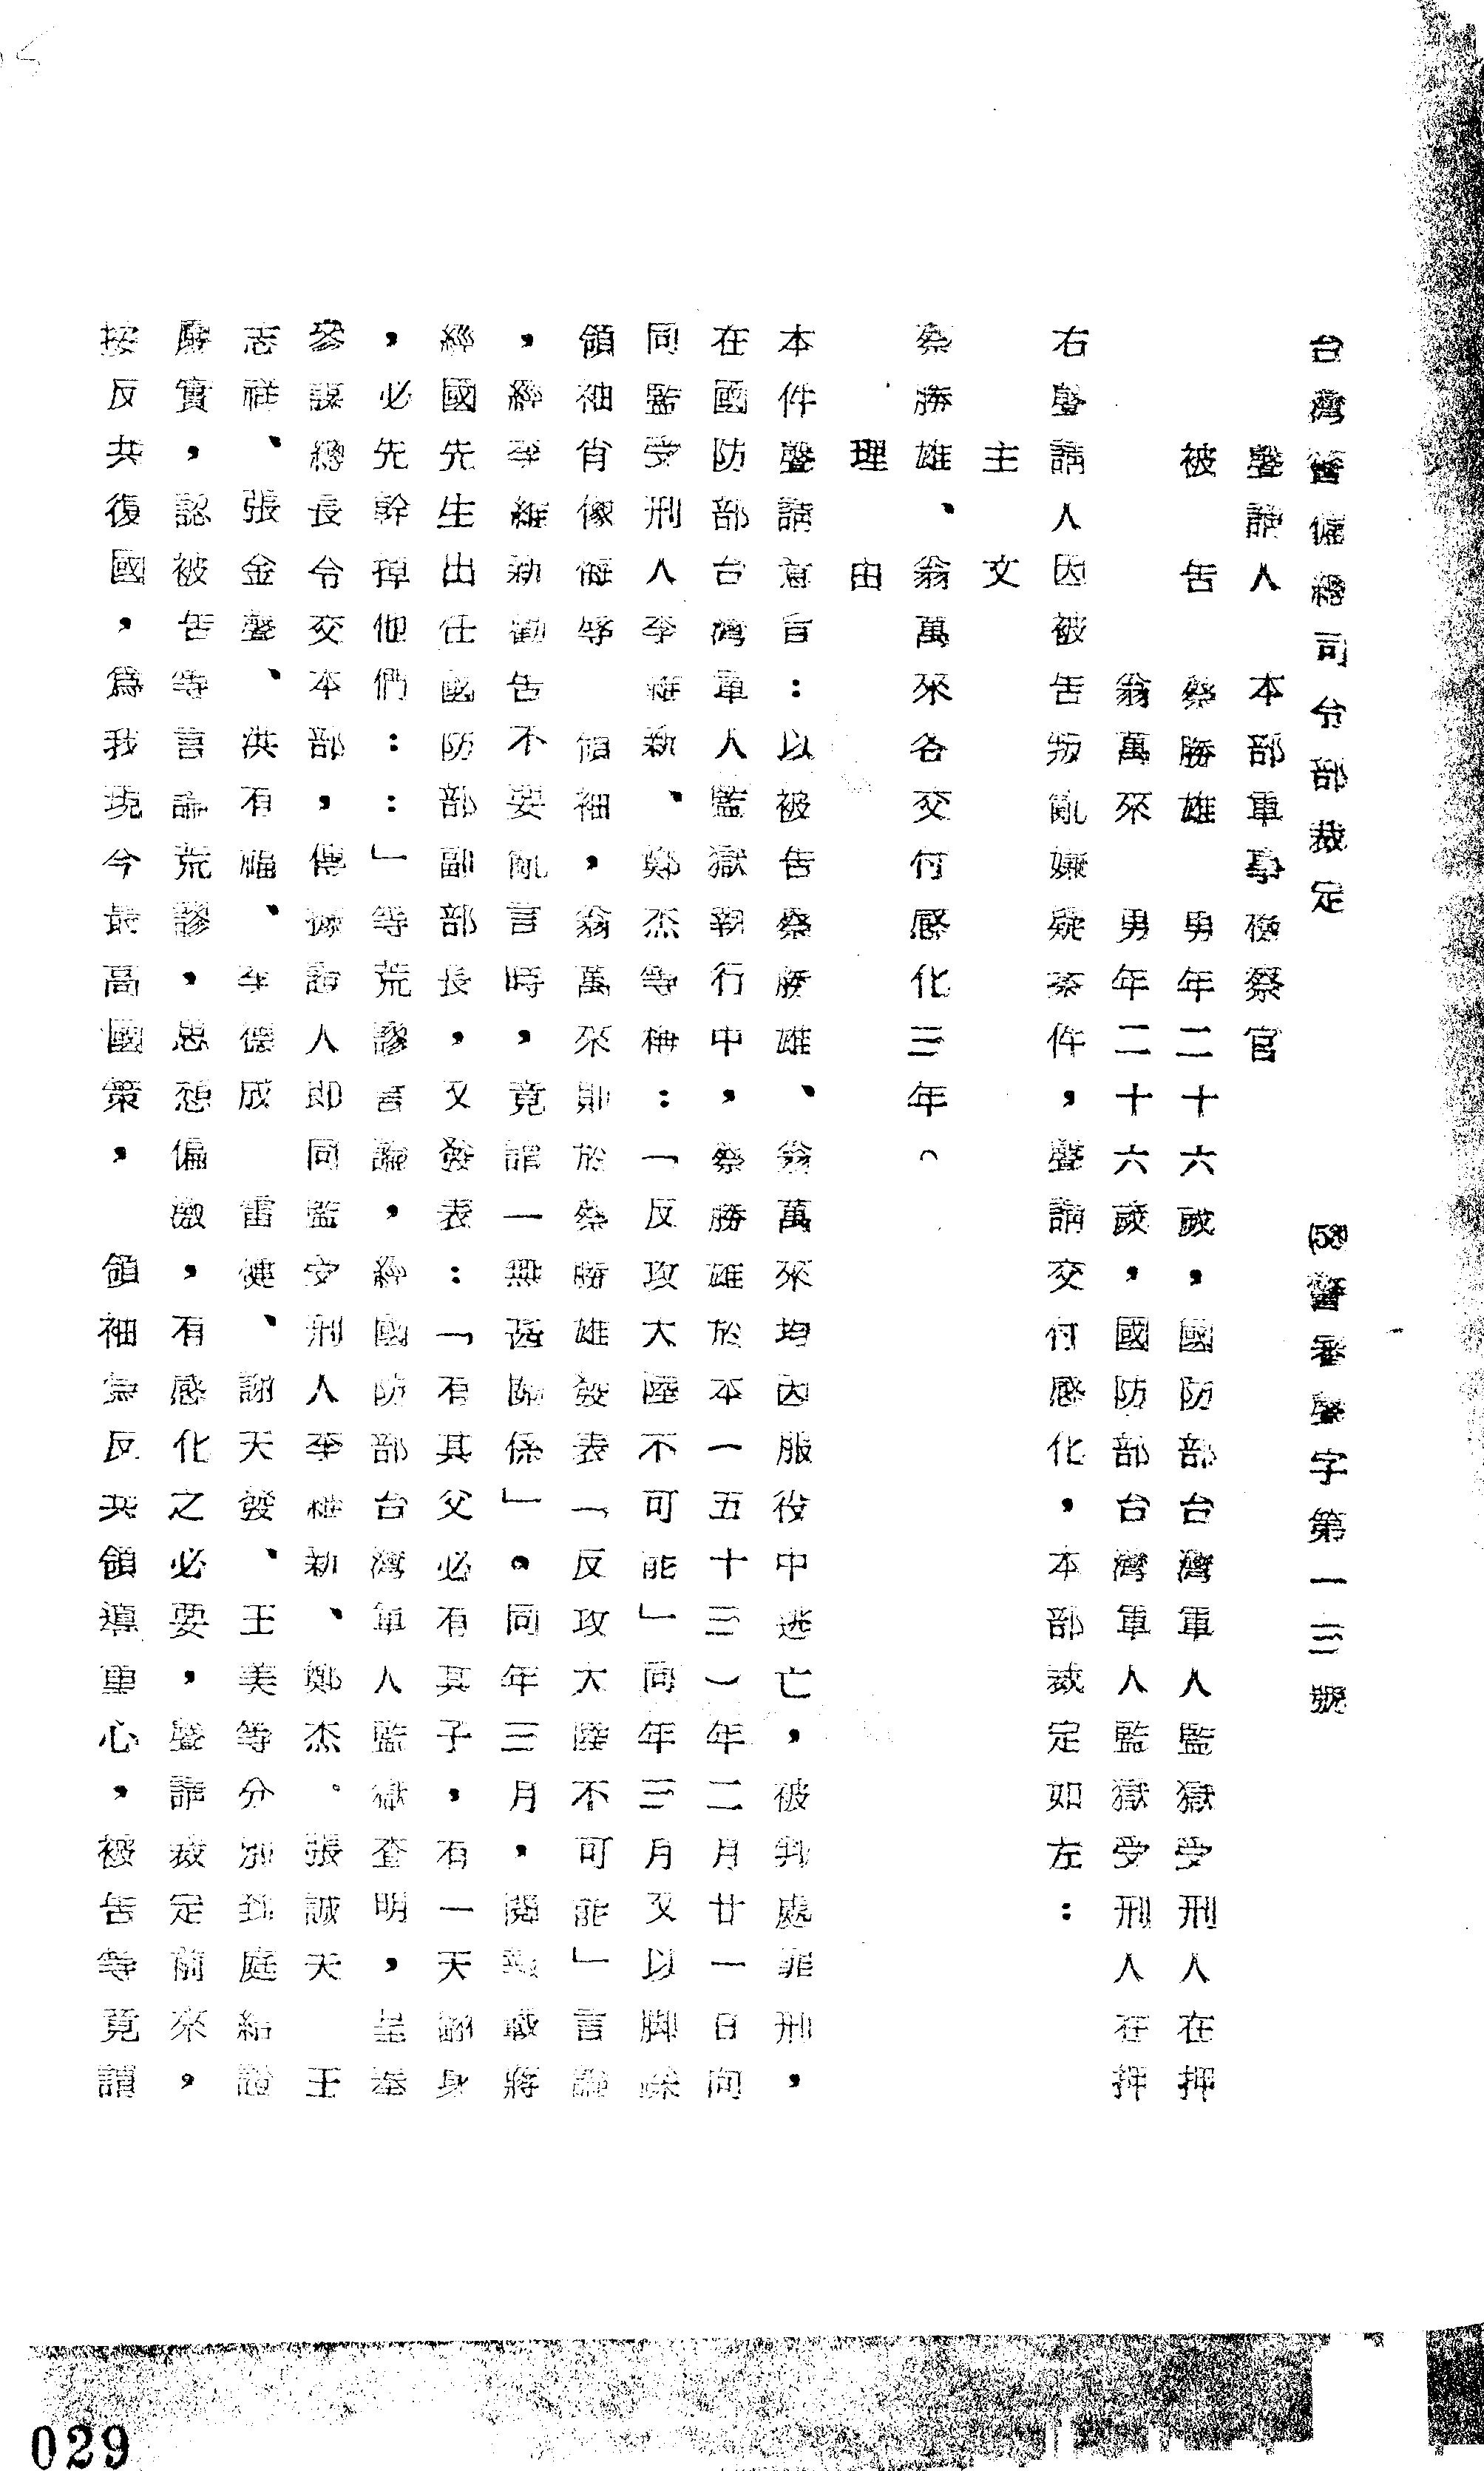 台灣警備總司令部裁定　(53)警審聲字第一三號
聲請人　本部軍事檢察官
被告　蔡勝雄　男年二十六歲，國防部台灣軍人監獄受刑人在押
翁萬來　男年二十六歲，國防部台灣軍人監獄受刑人在押
右聲請人因被告叛亂嫌疑案件，聲請交付感化，本部裁定如左：
主文
蔡勝雄、翁萬來各交付感化三年。
理由
本件聲請意旨：以被告蔡勝雄、翁萬來均因服役中逃亡，被判處罪刑，
在國防部台灣軍人監獄執行中，蔡勝雄於本（五十三）年二月廿一日向
同監受刑人李維新、鄭杰等稱：「反攻大陸不可能」同年三月又以脚踩
領袖肖像侮辱　領袖，翁萬來則於蔡勝雄發表「反攻大陸不可能」言論
，經李維新勸告不要亂言時，竟謂「無甚關係」。同年三月，閱報載蔣
經國先生出任國防部副部長，又發表：「有其父必有其子，有一天翻身
，必先幹掉他們：：」等荒謬言論，經國防部台灣軍人監獄查明，呈奉
參謀總長令交本部，傳據證人即同監受刑人李維新、鄭杰。張誠天　王
志祥、張金盤、洪有福、李德成　雷健、謝天發、王美等分別到庭結證
屬實，認被告等言論荒謬，思想偏激，有感化之必要，聲請裁定前來，
按反共復國，為我現今最高國策，　領袖為反共領導重心，被告等竟謂
029